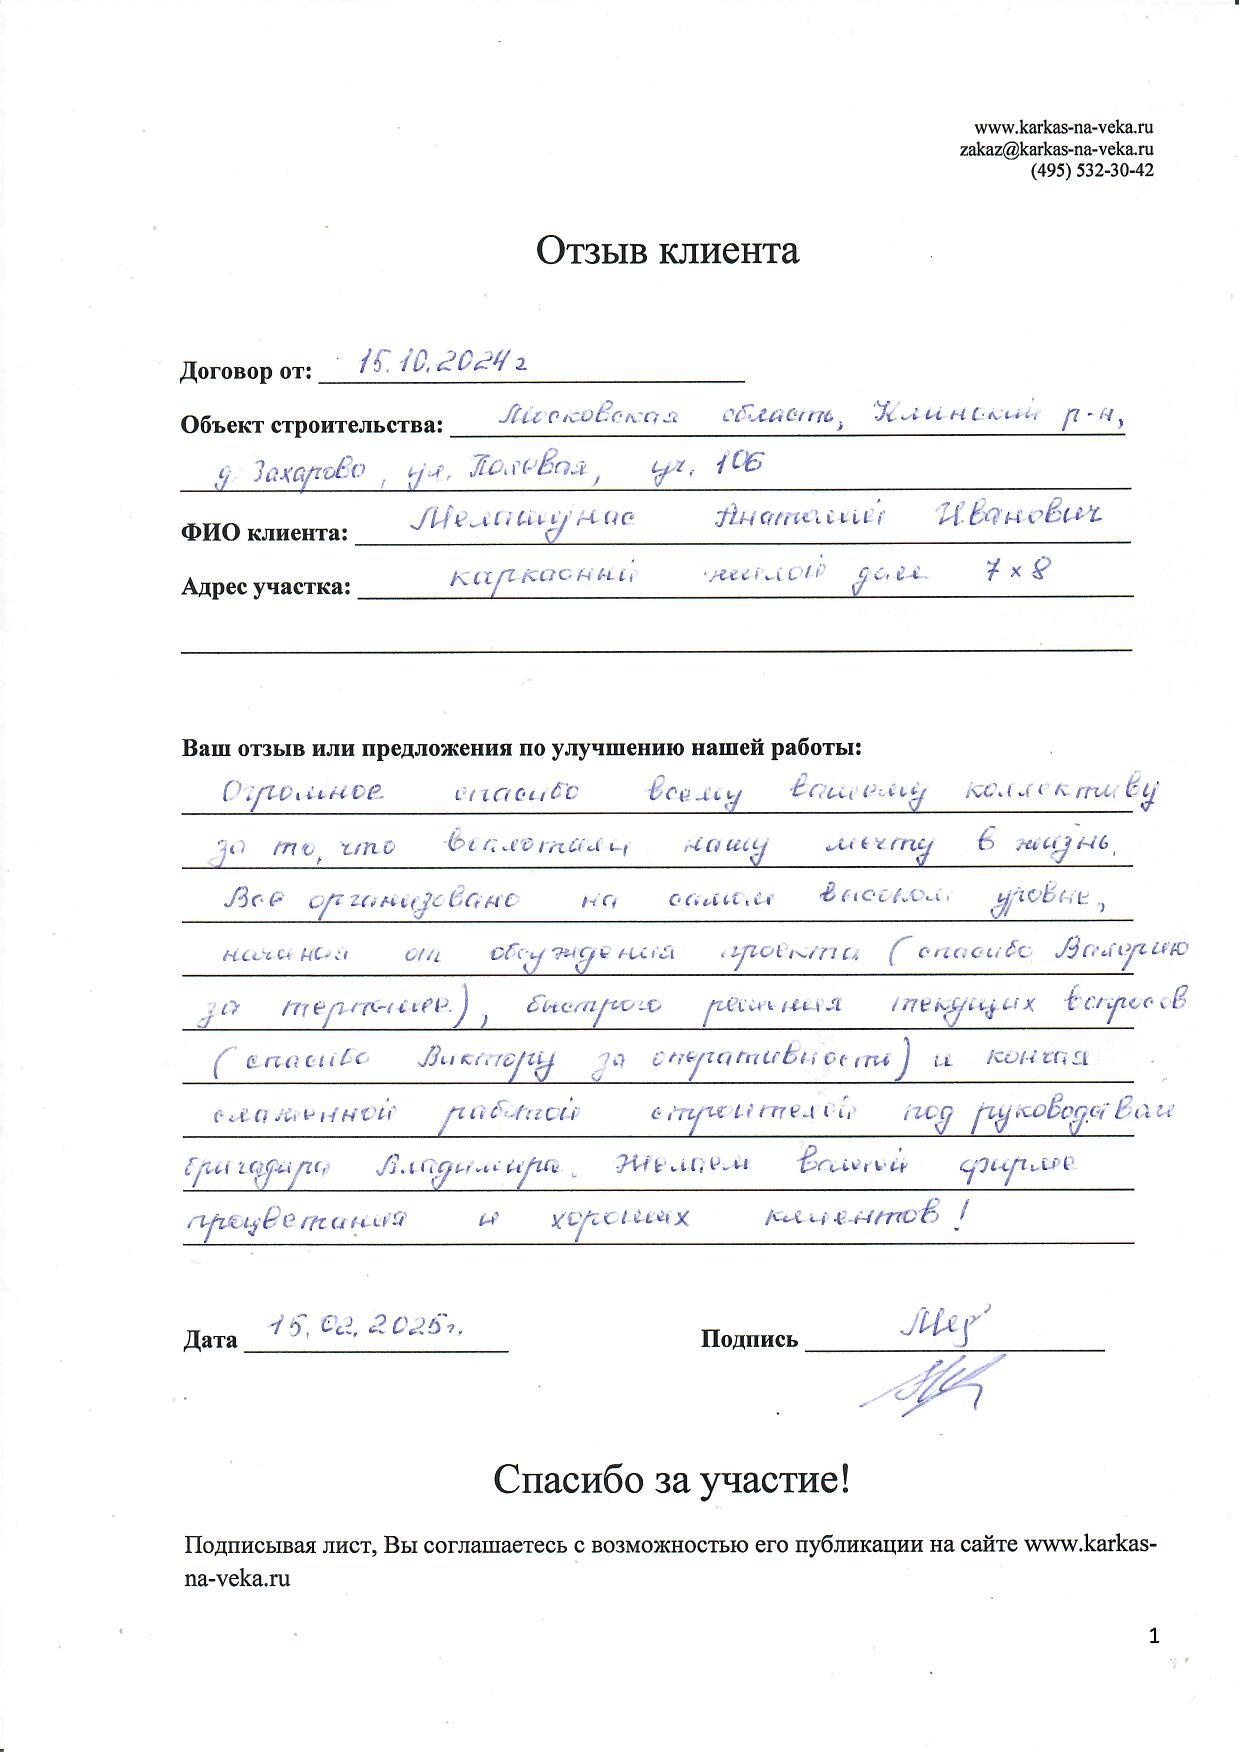 www.karkas-na-veka.ru
zakaz@karkas-na-veka.ru
(495) 532-30-42
Отзыв клиента
Договор от: 15.10.2024 г
Объект строительства: Московская область, Клинский р-н,
д. Захарово, ул. Полевая, уч. 106
ФИО клиента: Мелашунас Анатолий Иванович
Адрес участка: каркасный жилой дом 7x8
Ваш отзыв или предложения по улучшению нашей работы:
Огромное спасибо всему вашему коллективу
за то, что воплотили нашу мечту в жизнь.
Всё организовано на самом высоком уровне,
начиная от обсуждения проекта (спасибо Валерию
за терпение), быстрого решения текущих вопросов
(спасибо Виктору за оперативность) и кончая
слаженной работой строителей под руководством
бригадира Владимира. Желаем вашей фирме
процветания и хороших клиентов!
Дата 15.02.2025г. Подпись
Спасибо за участие!
Подписывая лист, Вы соглашаетесь с возможностью его публикации на сайте www.karkas-
na-veka.ru
1